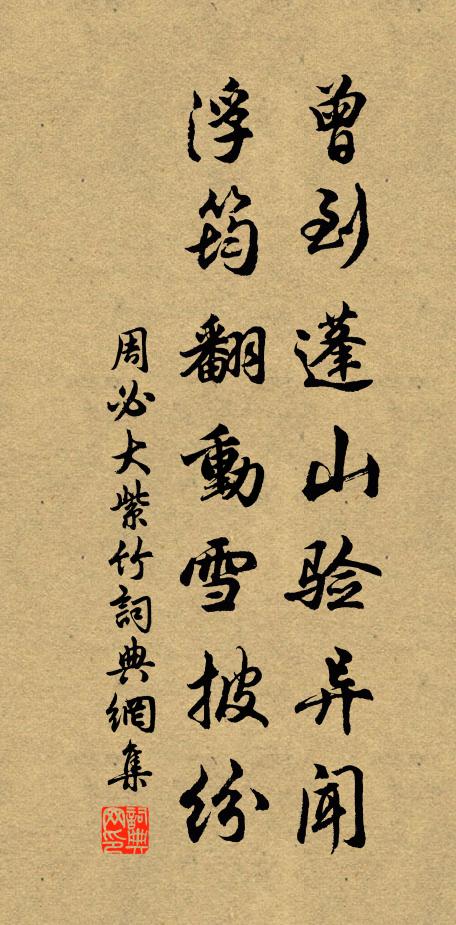 曾到蓬山验异闻
浮筠翻動雪披纷
周必大紫竹詞典網集
詞典网印